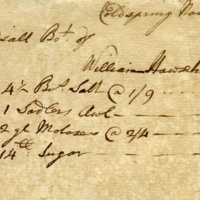 Coldspring
sall Bot. of
William
4½ Bu. Salt @ 1/9
1 Sadlers Awl
2 gl Molases @ 2/4
14 lb Sugar